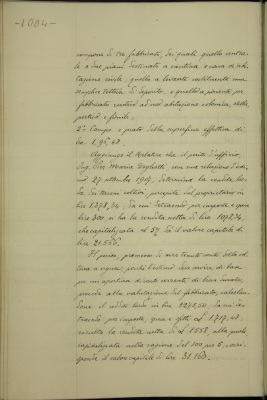 -1004-
compone di tre fabbricati, dei quali quello centra-
le a due piani destinato a cantina e casa di abi-
tazione civile, quello a levante costituente una
semplice tettoia di deposito, e quello a ponente per
fabbricato rustico ad uso abitazione colonica, stalla,
portico e fienile;
2° Campo e prato della superficie effettiva di
ha. 1.95,48.
Aggiunge il Relatore che il perito d'ufficio
Ing. Pier Maria con sua relazione d'u-
27 ottobre 1917, determina la rendita lor-
da dei terreni coltivi, percepita dal proprietario in
lire 1378,34, da cui detraendo per imposte e
lire 300, si ha la rendita netta di lire 1078,34
che capitalizzata al 5% dà il valore capitale di
lire 21.566.
Il perito, premesso di aver tenuto conto della
e agiunge, perchè l'edificio deve servire di base
per un apertura di conto corrente di lire
procede alla valutazione del fabbricato, calcolan-
done il reddito lordo in lire 2272,50, da cui de-
traendo per imposte, e sfitti ed £ 717,48
risulta la rendita netta di £ 1558, alla quale
capitalizzata nella ragione del 100 per 5, corri-
sponde il valore capitale di lire 31.160.